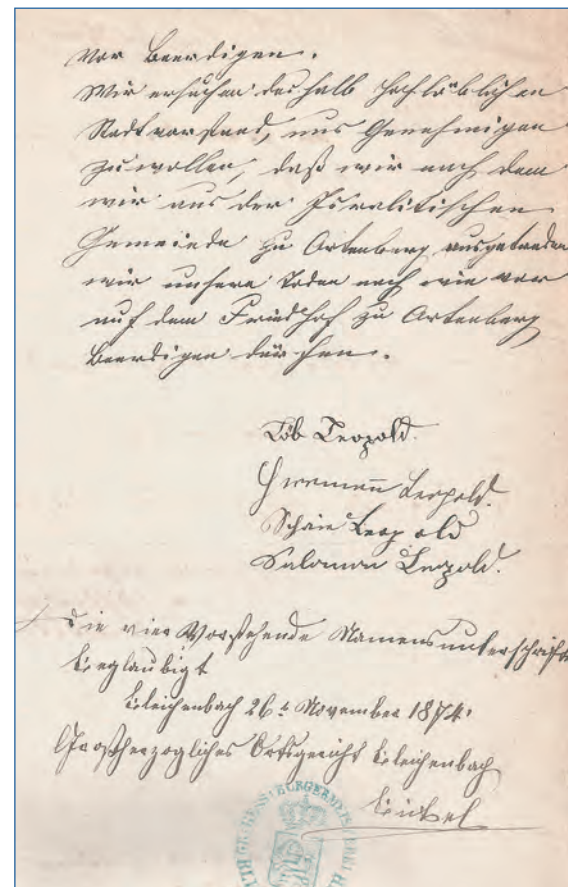 vor Beerdigen.
Wir ersuchen deshalb hochlöblichen
Stadtvorstand, uns Genehmigen
zu wollen, daß wir nach dem
wir aus der Israelitischen
Gemeinde zu Ortenberg ausgetreden
wir unsere Toden nach wie vor
auf dem Friedhof zu Ortenberg
Beerdigen dürfen.
Löb Leopold.
Hermann Leopold.
Leopold
Salomon Leopold.
Die vier Vorstehende Namensunterschriften
beglaubigt
Bleichenbach 26t November 1874.
Großherzogliches Ortsgericht Bleichenbach